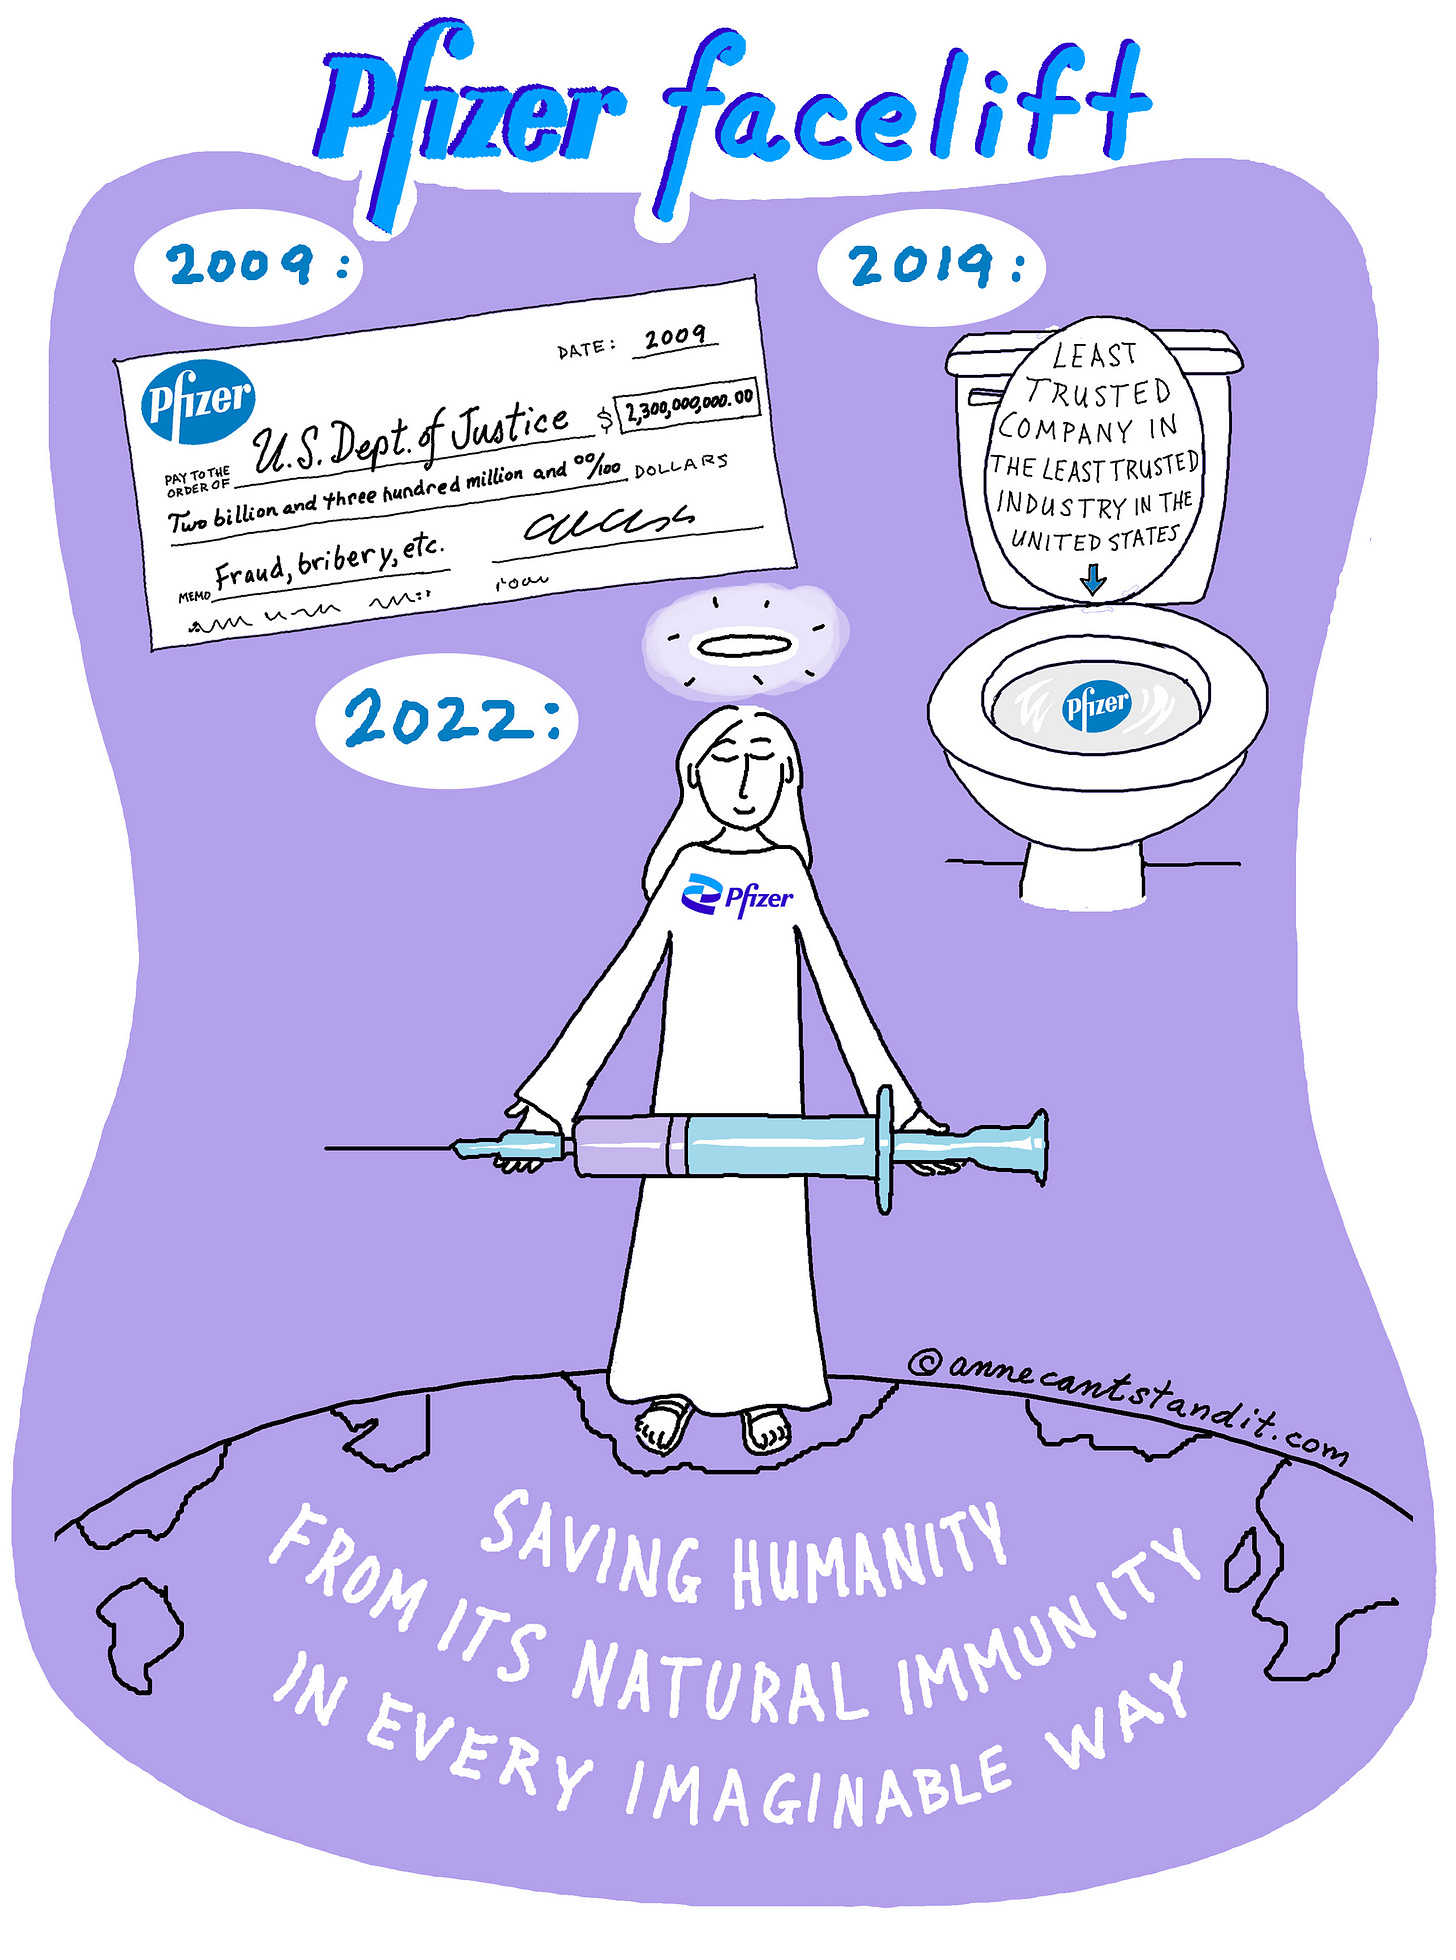 Pfizer facelift
2009:
DATE: 2009
Pfizer
PAY TO THE
ORDER OF
U.S. Dept. of Justice $ 2,300,000,000.00
Two billion and three hundred million and 00/100 DOLLARS
MEMO Fraud, bribery, etc.
2019:
LEAST
TRUSTED
COMPANY IN
THE LEAST TRUSTED
INDUSTRY IN THE
UNITED STATES
Pfizer
2022:
Pfizer
© annecantstandit.com
SAVING HUMANITY
FROM ITS NATURAL IMMUNITY
IN EVERY IMAGINABLE WAY